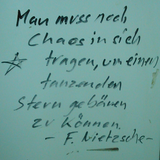 Man muss noch
Chaos in sich
tragen, um einen
tanzenden
Stern gebären
zu können
- F. Nietzsche -